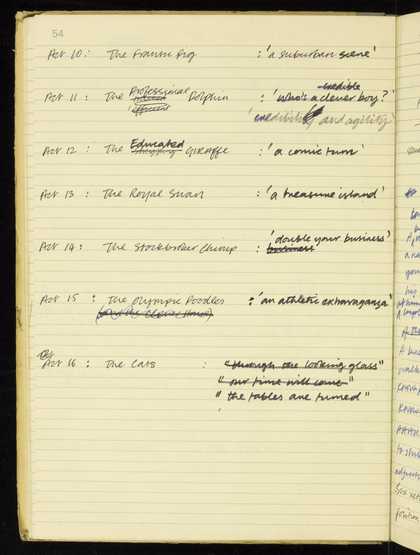 54
Act 10: The Frantic Pig : 'a suburban scene'
Professional credible
Act 11: The Dolphin : 'who's a clever boy?'
efficient credibility and agility'
Educated
Act 12: The Giraffe : 'a comic turn'
Act 13: The Royal Swan : 'a treasure island'
'double your business'
Act 14: The Stockbroker Chimp : business
Act 15: The Olympic Poodles : 'an athletic extravaganza'
Act 16: The Cats : "through the looking glass"
"our time will come"
"the tables are turned"